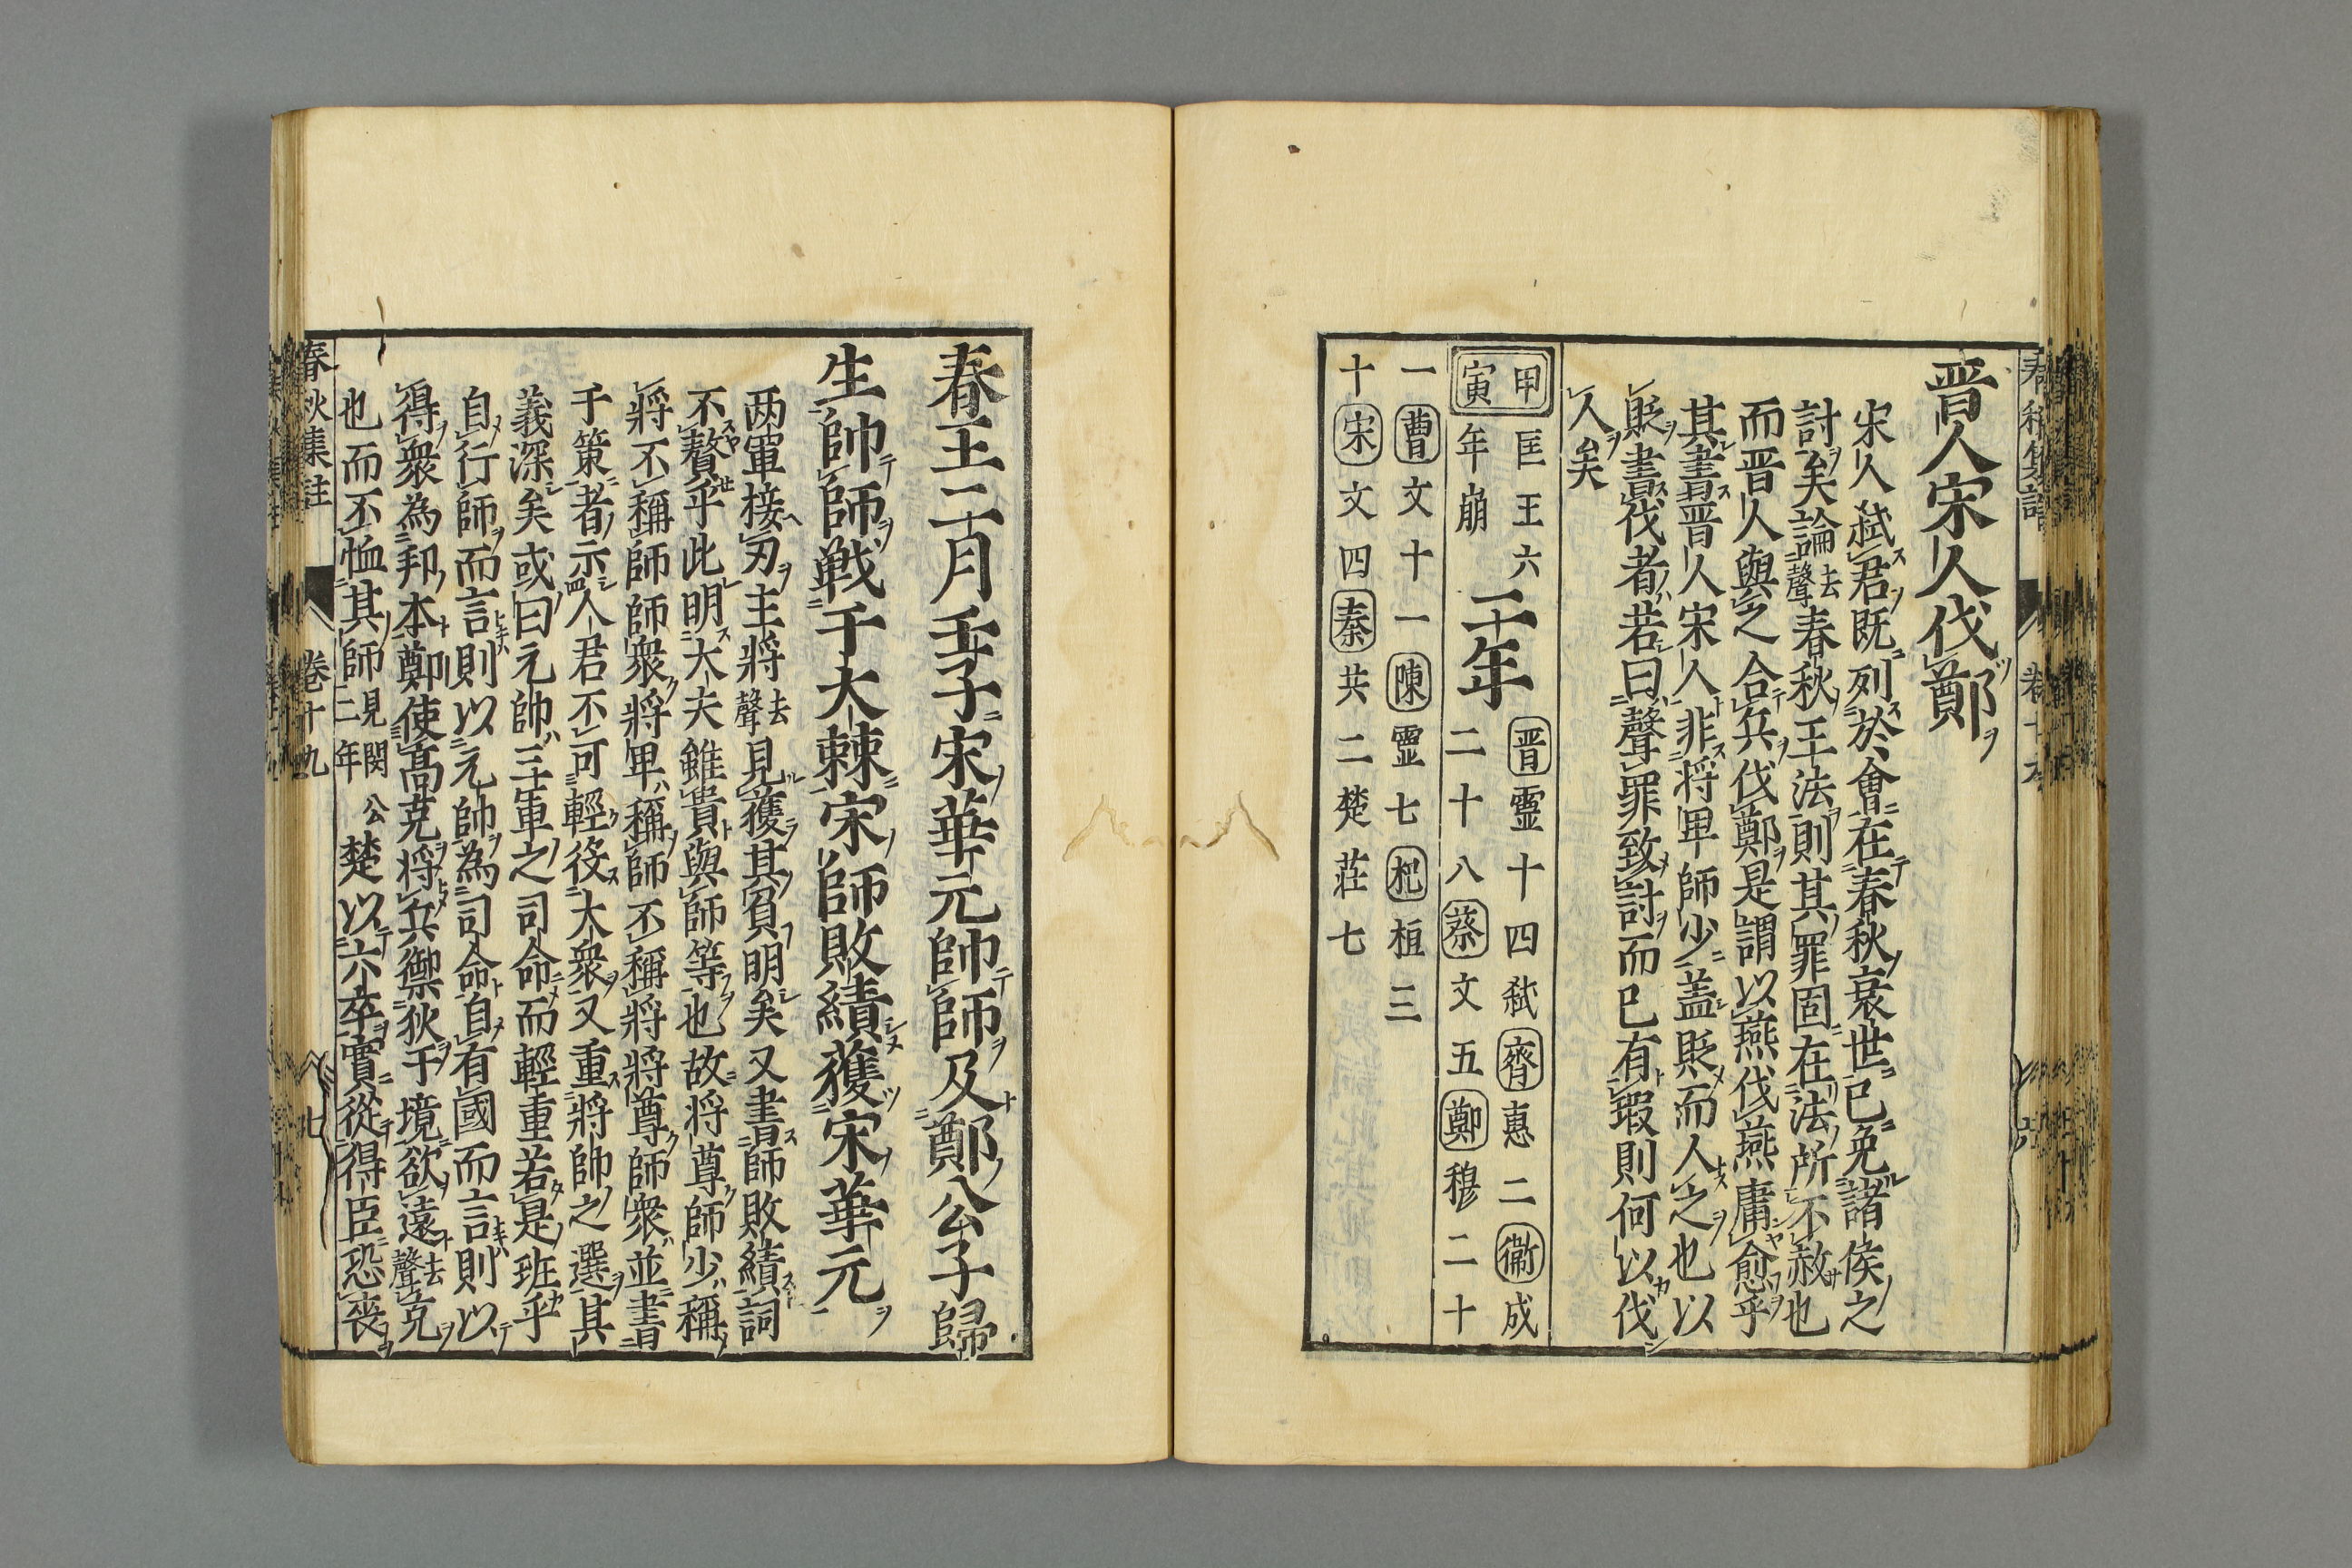 晋人宋人伐鄭
宋人弑君既列於會在春秋衰世已免諸侯之
討矣論去聲春秋王法則其罪固在法所不赦也
而晋人與之合兵伐鄭是謂以燕伐燕庸愈乎
其書晋人宋人非将卑師少盖貶而人之也以
貶書伐者若曰聲罪致討而已有瑕則何以伐
人矣
甲寅 匡王六年崩 二年 晋靈十四弑 齊惠二 衞成二十八 蔡文五 鄭穆二十
一 曹文十一 陳靈七 杞桓三
十 宋文四 秦共二 楚莊七
春秋集註 卷十九
春王二月壬子宋華元帥師及鄭公子歸
生帥師戦于大棘宋師敗績獲宋華元
两軍接刃主將去聲見獲其負明矣又書師敗績詞
不贅乎此明大夫雖貴與師等也故将尊師少稱
將不稱師師衆將卑稱師不稱將將尊師衆並書
于策者示人君不可輕役大衆又重將帥之選其
義深矣或曰元帥三軍之司命而輕重若是班乎
自行師而言則以元帥為司命自有國而言則以
得衆為邦本鄭使高克将兵禦狄于境欲遠去聲克
也而不恤其師見閔公二年楚以六卒實從得臣恐喪
春秋集註 卷十九